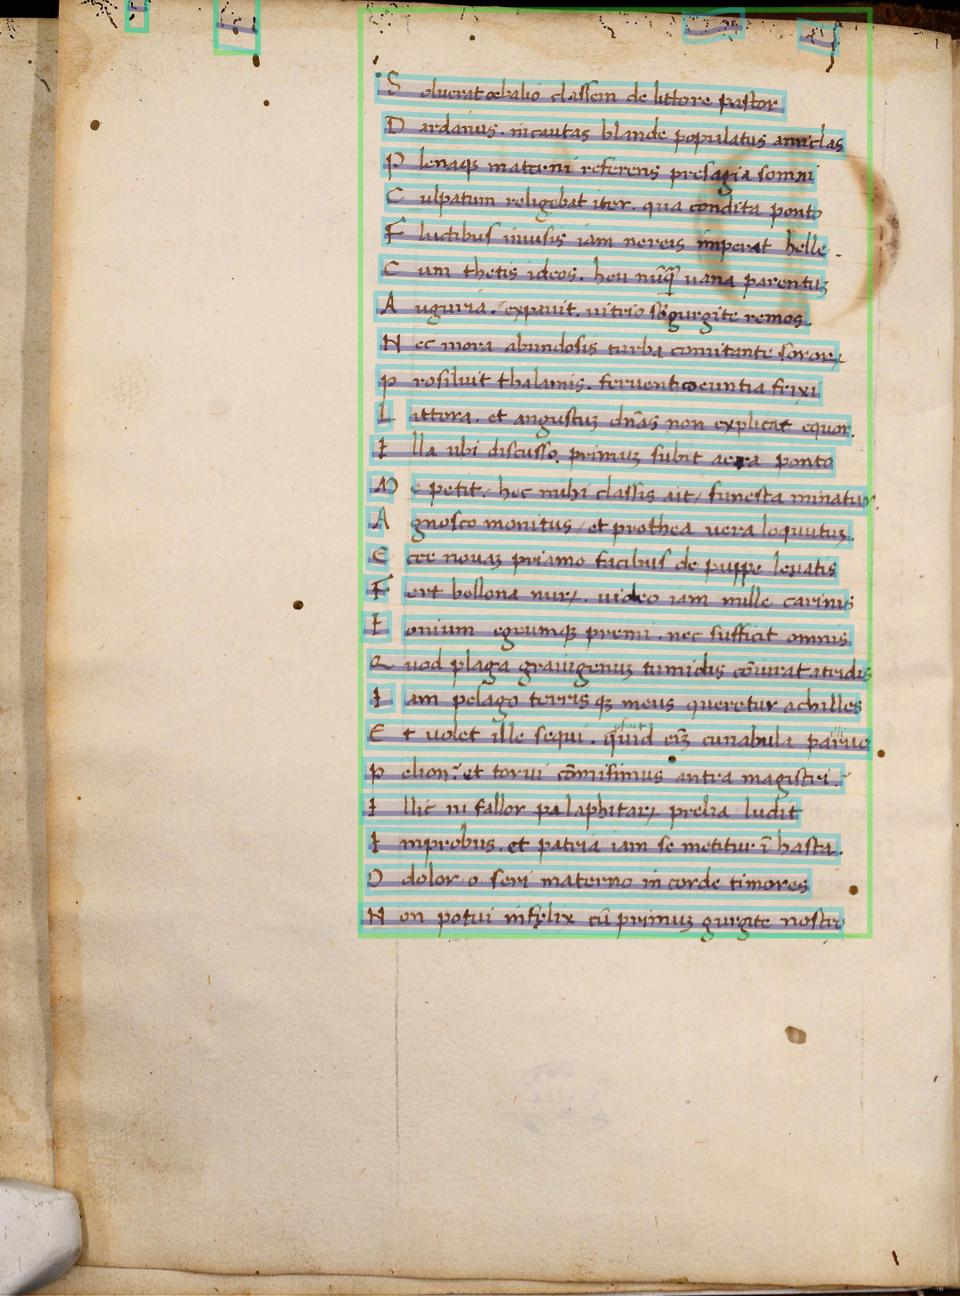 S oluerat oebalio classem de littore pastor
D ardanus. incautas blande populatus amiclas
P lenaqꝫ materni referens presagia somni
C ulpatum religebat iter. qua condita ponto
F luctibus inuisis iam nereis imperat helle.
C um thetis ideos. heu nūqꝫ uana parentuꝫ
A uguria. expauit. uitrio sb gurgite remos.
N ec mora abundosis turba comitante sororꝝ
p rosiluit thalamis. feruent coeuntia frixi
L ittora. et angustuꝫ dn̄as non explicat equor.
I lla ubi discusso. primuꝫ subit aera ponto
M e petit. hec mihi classis ait/ funesta minatur.
A gnosco monitus/ et prothea uera loquutuꝫ.
E cce nouaꝫ priamo facibus de puppe leuatis
F ert bellona nurꝫ. uideo iam mille carinis
I onium egeumqꝫ premi. nec sufficit omnis
Q uod plaga graiugenuꝫ tumidis cōiurat atridis
I am pelago terrisqꝫ meus queretur achilles
E t uolet ille sequi. quid eīꝫ cunabula paruo
p elion? et torui cōmisimus antra magistri.
I llic ni fallor pa laphitarꝝ prelia ludit
I mprobus. et patria iam se metitur ī hasta.
O dolor o seri materno in corde timores
N on potui infelix cū primuꝫ gurgite nostro